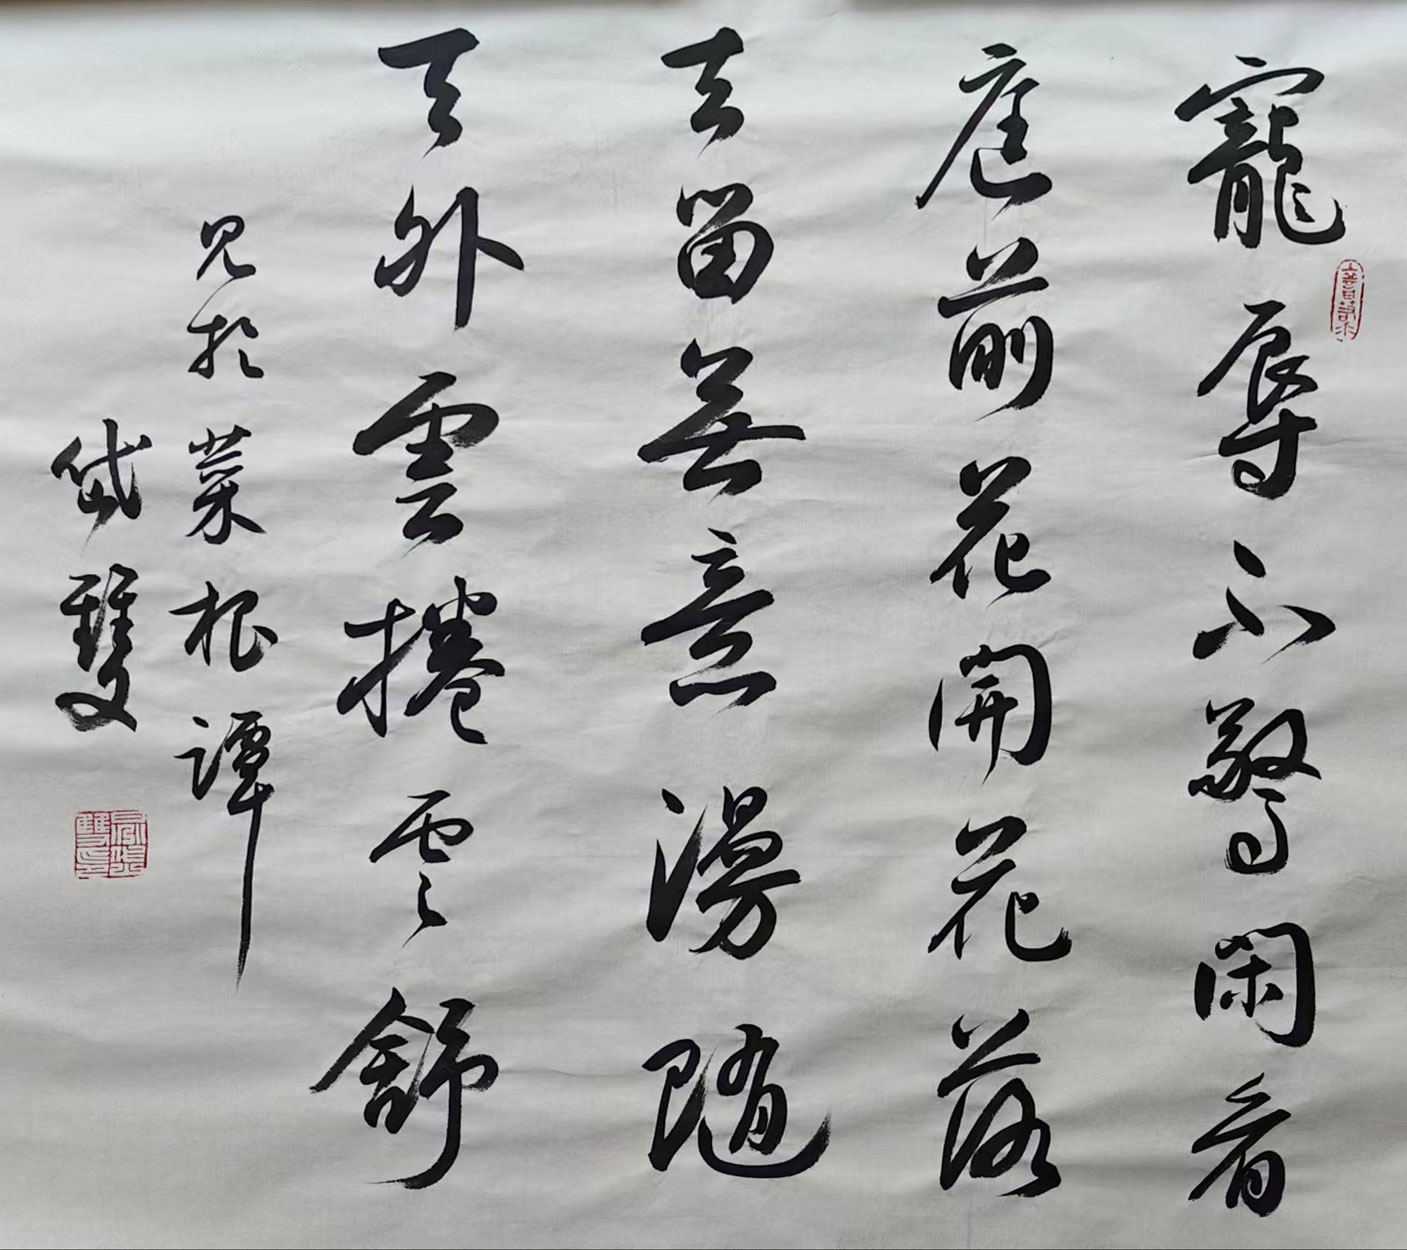 寵辱不驚閑看
庭前花開花落
去留無意漫隨
天外雲捲雲舒
見於菜根譚
岱雙